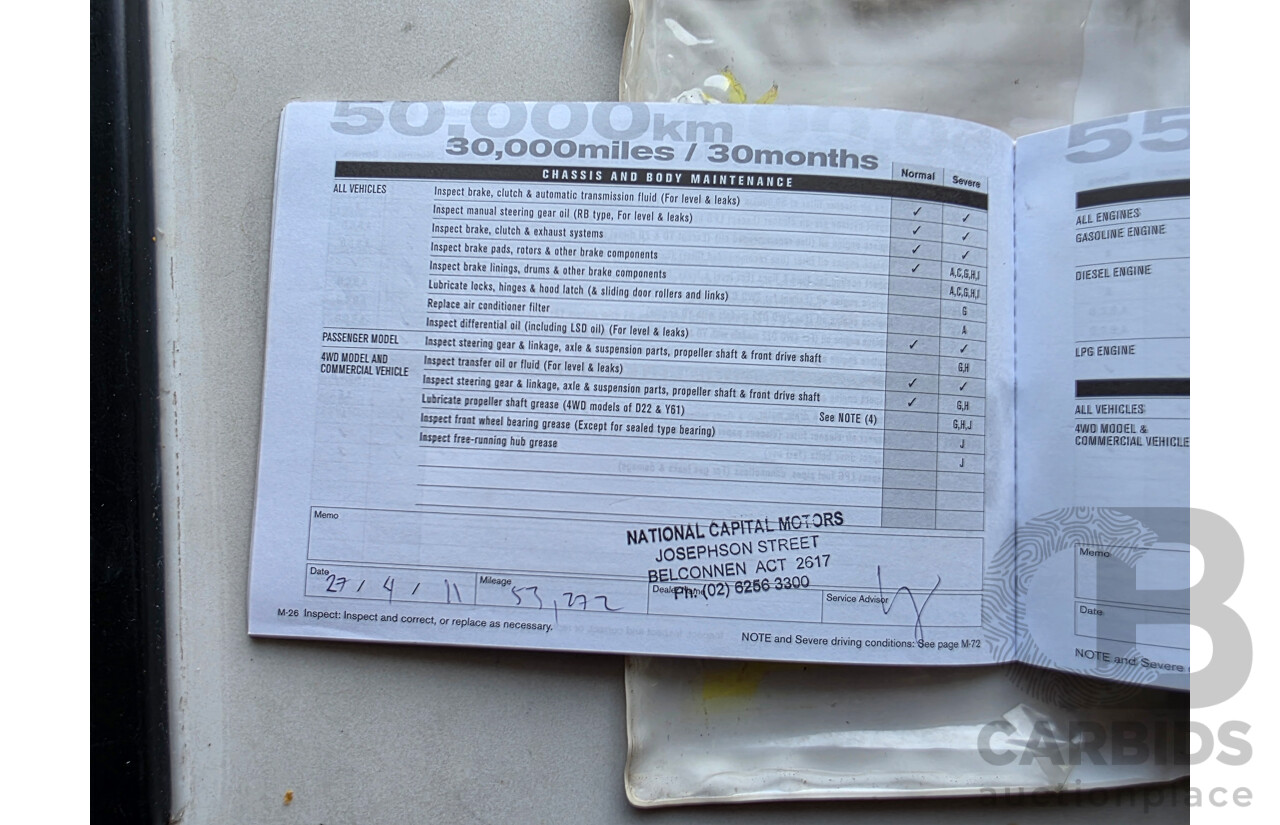 50,000km
30,000miles / 30months
CHASSIS AND BODY MAINTENANCE
Normal
Severe
ALL VEHICLES
Inspect brake, clutch & automatic transmission fluid (For level & leaks) ✓ ✓
Inspect manual steering gear oil (RB type, For level & leaks) ✓ ✓
Inspect brake, clutch & exhaust systems ✓ ✓
Inspect brake pads, rotors & other brake components ✓ A,C,G,H,I
Inspect brake linings, drums & other brake components A,C,G,H,I
Lubricate locks, hinges & hood latch (& sliding door rollers and links) G
Replace air conditioner filter A
Inspect differential oil (including LSD oil) (For level & leaks) ✓ ✓
PASSENGER MODEL
Inspect steering gear & linkage, axle & suspension parts, propeller shaft & front drive shaft G,H
4WD MODEL AND
COMMERCIAL VEHICLE
Inspect transfer oil or fluid (For level & leaks) ✓ ✓
Inspect steering gear & linkage, axle & suspension parts, propeller shaft & front drive shaft ✓ G,H
Lubricate propeller shaft grease (4WD models of D22 & Y61) See NOTE (4) G,H,J
Inspect front wheel bearing grease (Except for sealed type bearing) J
Inspect free-running hub grease J
Memo
NATIONAL CAPITAL MOTORS
JOSEPHSON STREET
BELCONNEN ACT 2617
Ph: (02) 6256 3300
Date 27 / 4 / 11
Mileage 53,272
Service Advisor
M-26 Inspect: Inspect and correct, or replace as necessary.
NOTE and Severe driving conditions: See page M-72
55
ALL ENGINES
GASOLINE ENGINE
DIESEL ENGINE
LPG ENGINE
ALL VEHICLES
4WD MODEL &
COMMERCIAL VEHICLE
Memo
Date
NOTE and Severe
CB
CARBIDS
auctionplace